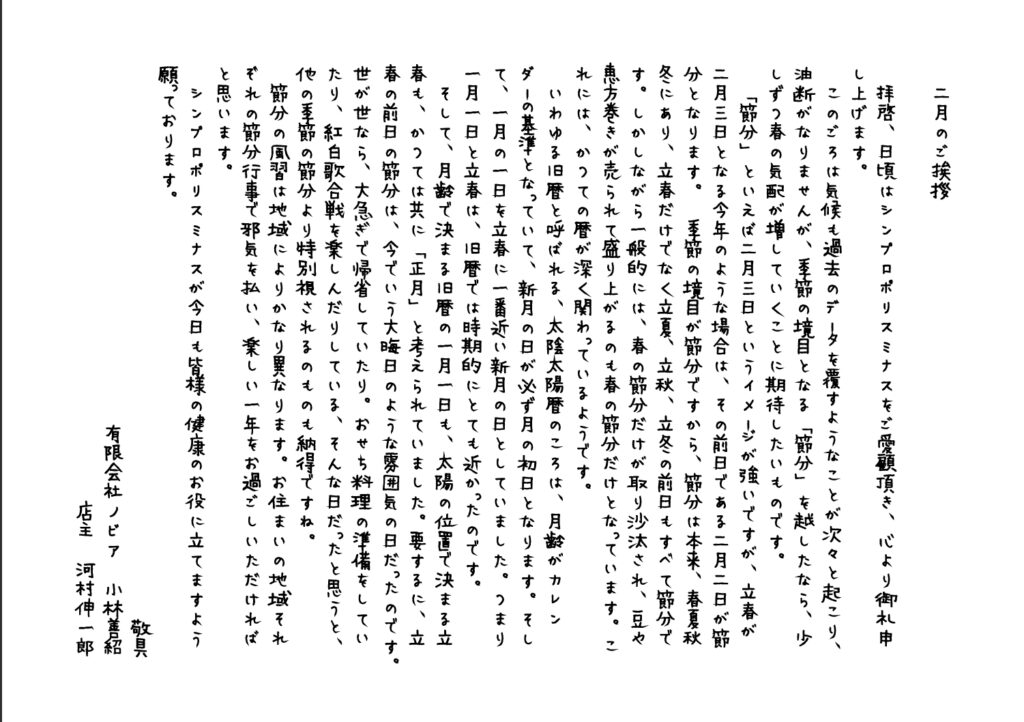 二月のご挨拶
拝啓、日頃はシンプロポリスミナスをご愛顧頂き、心より御礼申
し上げます。
このごろは気候も過去のデータを覆すようなことが次々と起こり、
油断がなりませんが、季節の境目となる「節分」を越したなら、少
しずつ春の気配が増していくことに期待したいものです。
「節分」といえば二月三日というイメージが強いですが、立春が
二月三日となる今年のような場合は、その前日である二月二日が節
分となります。 季節の境目が節分ですから、節分は本来、春夏秋
冬にあり、立春だけでなく立夏、立秋、立冬の前日もすべて節分で
す。しかしながら一般的には、春の節分だけが取り沙汰され、豆や
恵方巻きが売られて盛り上がるのも春の節分だけとなっています。こ
れには、かつての暦が深く関わっているようです。
いわゆる旧暦と呼ばれる、太陰太陽暦のころは、月齢がカレン
ダーの基準となっていて、新月の日が必ず月の初日となります。そし
て、一月の一日を立春に一番近い新月の日としていました。つまり
一月一日と立春は、旧暦では時期的にとても近かったのです。
そして、月齢で決まる旧暦の一月一日も、太陽の位置で決まる立
春も、かつては共に「正月」と考えられていました。要するに、立
春の前日の節分は、今でいう大晦日のような雰囲気の日だったのです。
世が世なら、大急ぎで帰省していたり。おせち料理の準備をしてい
たり、紅白歌合戦を楽しんだりしている、そんな日だったと思うと、
他の季節の節分より特別視されるのもの納得ですね。
節分の風習は地域によりかなり異なります。お住まいの地域それ
ぞれの節分行事で邪気を払い、楽しい一年をお過ごしいただければ
と思います。
シンプロポリスミナスが今日も皆様の健康のお役に立てますよう
願っております。
敬具
有限会社ノビア 小林善紹
店主 河村伸一郎